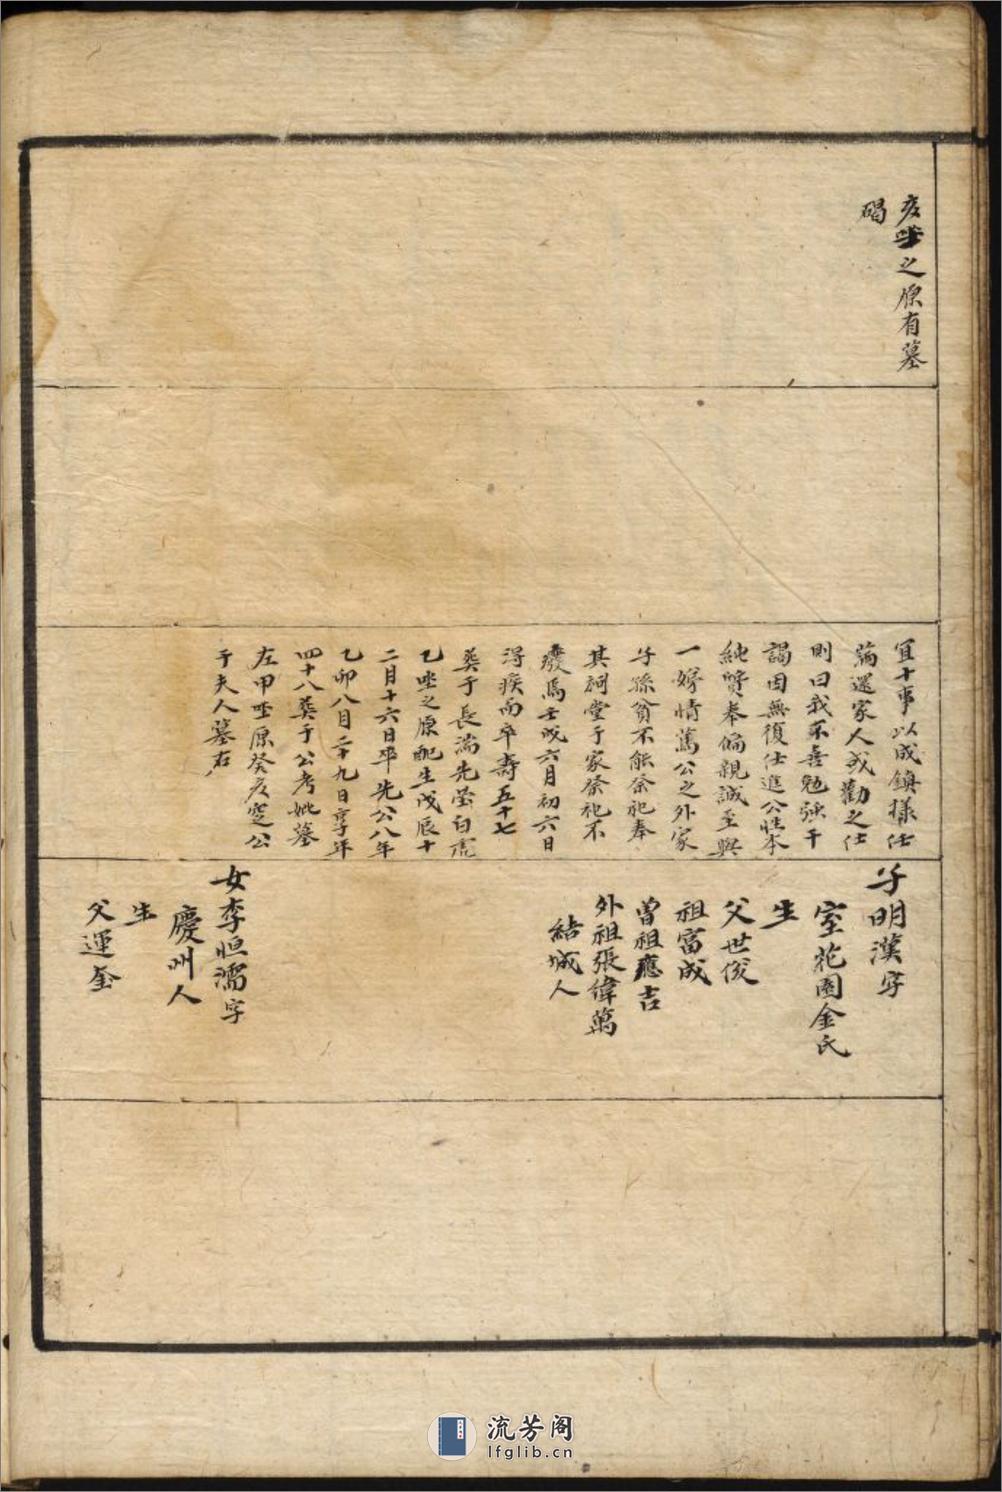 亥坐之原有墓
碣
宜十事以成鎮擢仕
蕩還家人或勸之仕
則曰我不喜勉强干
謁因無復仕進公性本
純賢奉偏親誠至與
一嫂情篤公之外家
子孫貧不能祭祀奉
其祠堂于家祭祀不
癈焉壬戌六月初六日
得疾而卒壽五十七
葬于長湍先塋白虎
乙坐之原配生戊辰十
二月十六日卒先公八年
乙卯八月二十九日享年
四十八葬于公考妣墓
左甲坐原癸亥窆公
于夫人墓右
子明漢字
室花園金氏
生
父世俊
祖富成
曾祖應吉
外祖張偉萬
結城人
女李恒濡字
慶州人
生
父運奎
流芳阁
lfglib.cn